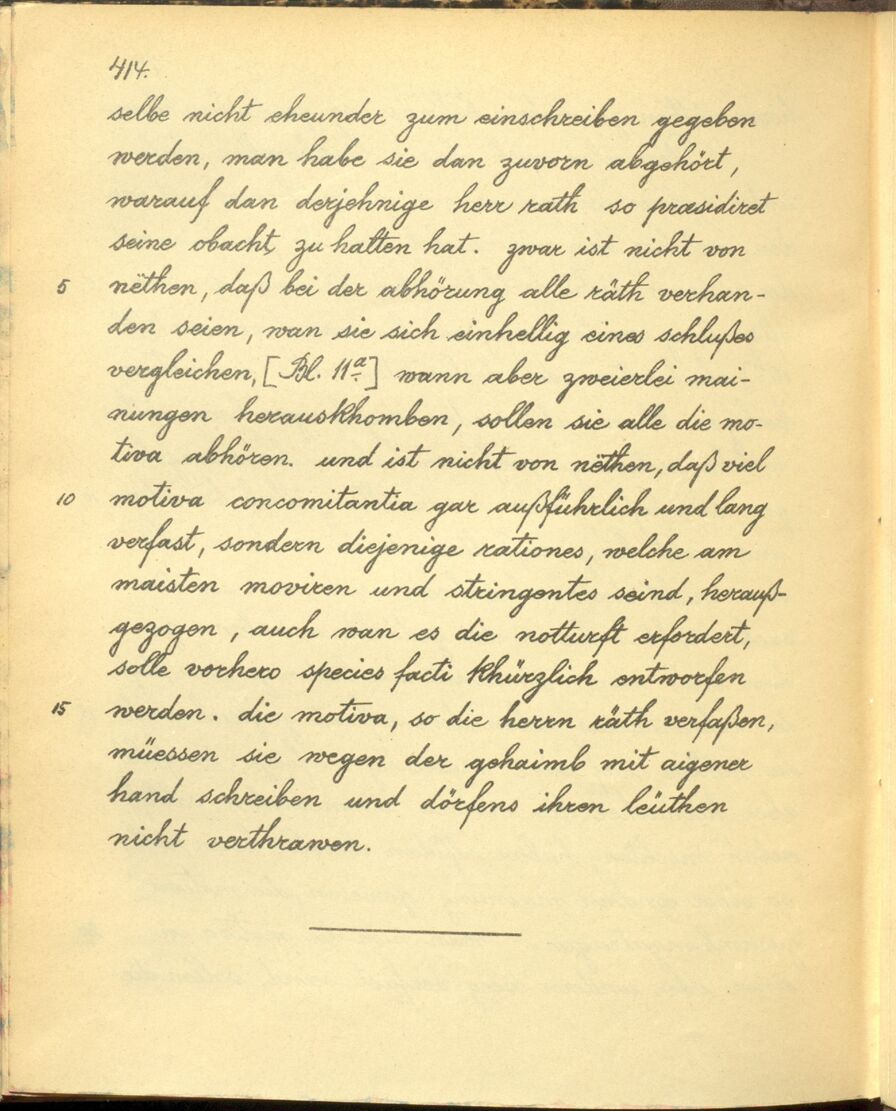 414.
selbe nicht eheunder zum einschreiben gegeben
werden, man habe sie dan zuvorn abgehört,
warauf dan derjehnige herr rath so præsidiret
seine obacht zu halten hat. zwar ist nicht von
5 nëthen, daß bei der abhörung alle räth verhan-
den seien, wan sie sich einhellig eines schlußes
vergleichen, [Bl. 11a] wann aber zweierlei mai-
nungen herauskhomben, sollen sie alle die mo-
tiva abhören. und ist nicht von nëthen, daß viel
10 motiva concomitantia gar außführlich und lang
verfast, sondern diejenige rationes, welche am
maisten moviren und stringentes seind, herauß-
gezogen, auch wan es die notturft erfordert,
solle vorhero species facti khürzlich entworfen
15 werden. die motiva, so die herrn räth verfaßen,
müessen sie wegen der gehaimb mit aigener
hand schreiben und dörfens ihren leüthen
nicht verthrawen.